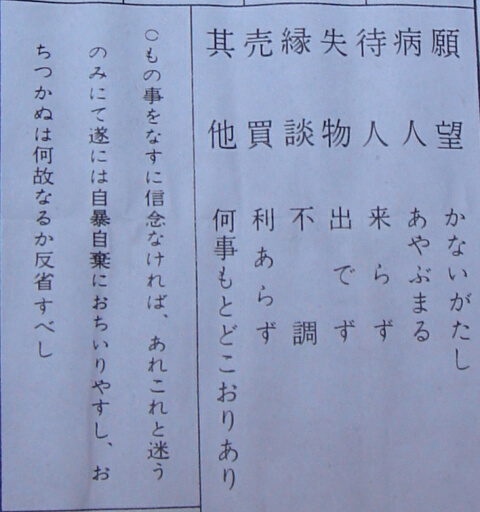 願望 かないがたし
病人 あやぶまる
待人 来らず
失物 出でず
縁談 不調
売買 利あらず
其他 何事もとどこおりあり
○もの事をなすに信念なければ、あれこれと迷う
のみにて遂には自暴自棄におちいりやすし、お
ちつかぬは何故なるか反省すべし